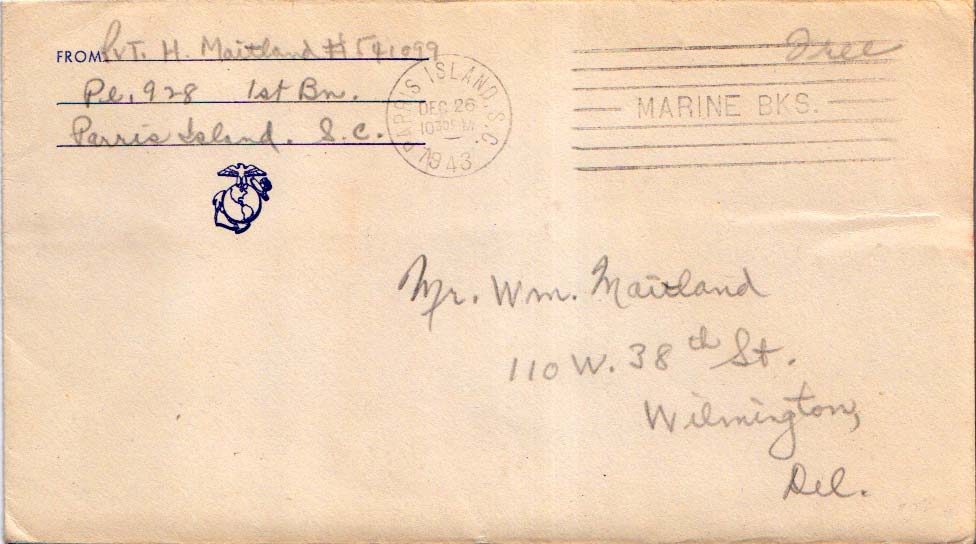 FROM Pvt. H. Maitland # 541099
Pl. 928 1st Bn.
Parris Island. S.C.
PARRIS ISLAND. S.C.
DEC 26
1943
Free
MARINE BKS.
Mr. Wm. Maitland
110 W. 38th St.
Wilmington,
Del.